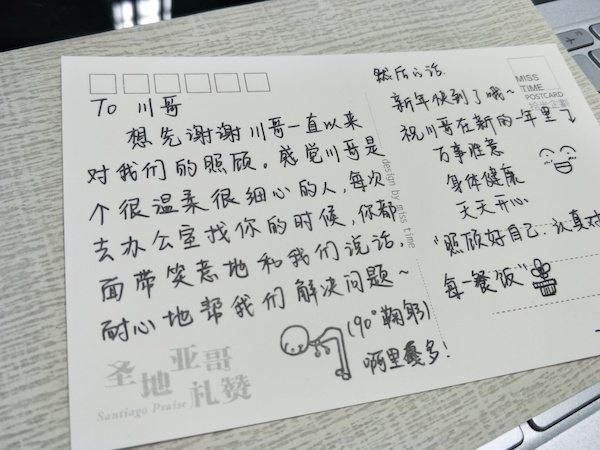 To 川哥
想先谢谢川哥一直以来
对我们的照顾。感觉川哥是
个很温柔很细心的人,每次
去办公室找你的时候,你都
面带笑意地和我们说话,
耐心地帮我们解决问题~
(90°鞠躬)
啊里嘎多!
圣地亚哥
礼赞
Santiago Praise
design by miss time
然后的话,
新年快到了哦~
祝川哥在新的一年里
百事胜意
身体健康
天天开心
"照顾好自己 认真对
每一餐饭"
MISS
TIME
POSTCARD